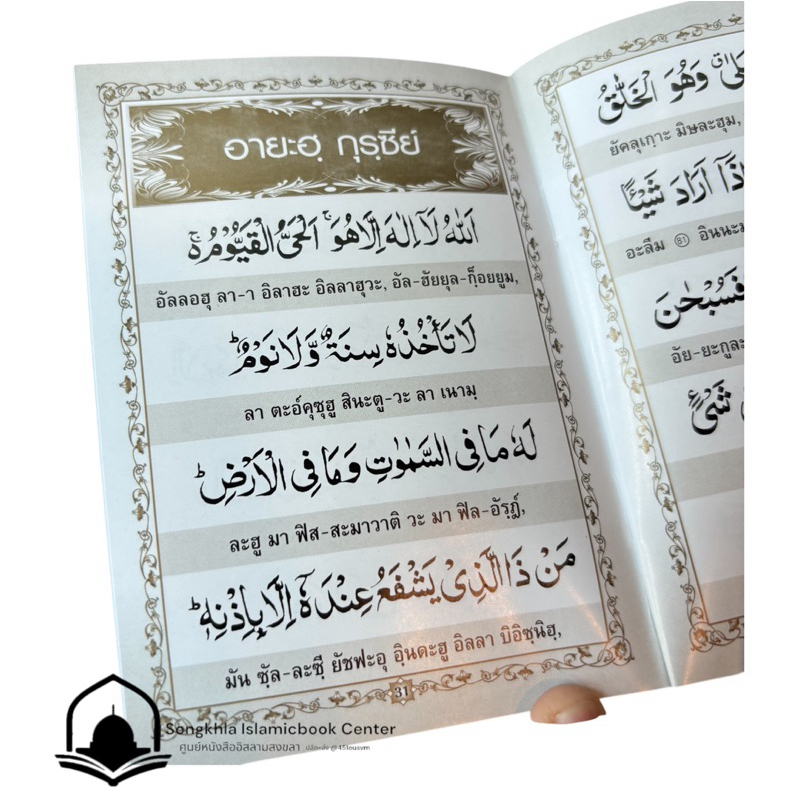 อายะฮฺ กุรฺซียฺ
اَللهُ لَآ اِلٰهَ اِلَّا هُوَ ۚ اَلْحَيُّ الْقَيُّوْمُ ەۚ
อัลลอฮุ ลา-า อิลาฮะ อิลลาฮุวะ, อัล-ฮัยยุล-ก็อยยูม,
لَا تَأْخُذُهٗ سِنَةٌ وَّلَا نَوْمٌ ؕ
ลา ตะอ์คุซุฮู สินะตู-วะ ลา เนามฺ
لَهٗ مَا فِى السَّمٰوٰتِ وَمَا فِى الْاَرْضِ ؕ
ละฮู มา ฟิส-สะมาวาติ วะ มา ฟิล-อัรฺฎ์,
مَنْ ذَا الَّذِىْ يَشْفَعُ عِنْدَهٗٓ اِلَّا بِاِذْنِهٖ ؕ
มัน ซัล-ละซี ยัชฟะอุ อินดะฮู อิลลา บิอิซนิฮฺ,
31
وَهُوَ الْخَلّٰقُ
ยัคลุเกฺาะ มิษละฮุม,
اَرَادَ شَيْئًا
อะลีม 81 อินนะม
فَسُبْحٰنَ
อัย-ยะกูละ
شَىْءٍ
Songkhla Islamicbook Center
ศูนย์หนังสืออิสลามสงขลา